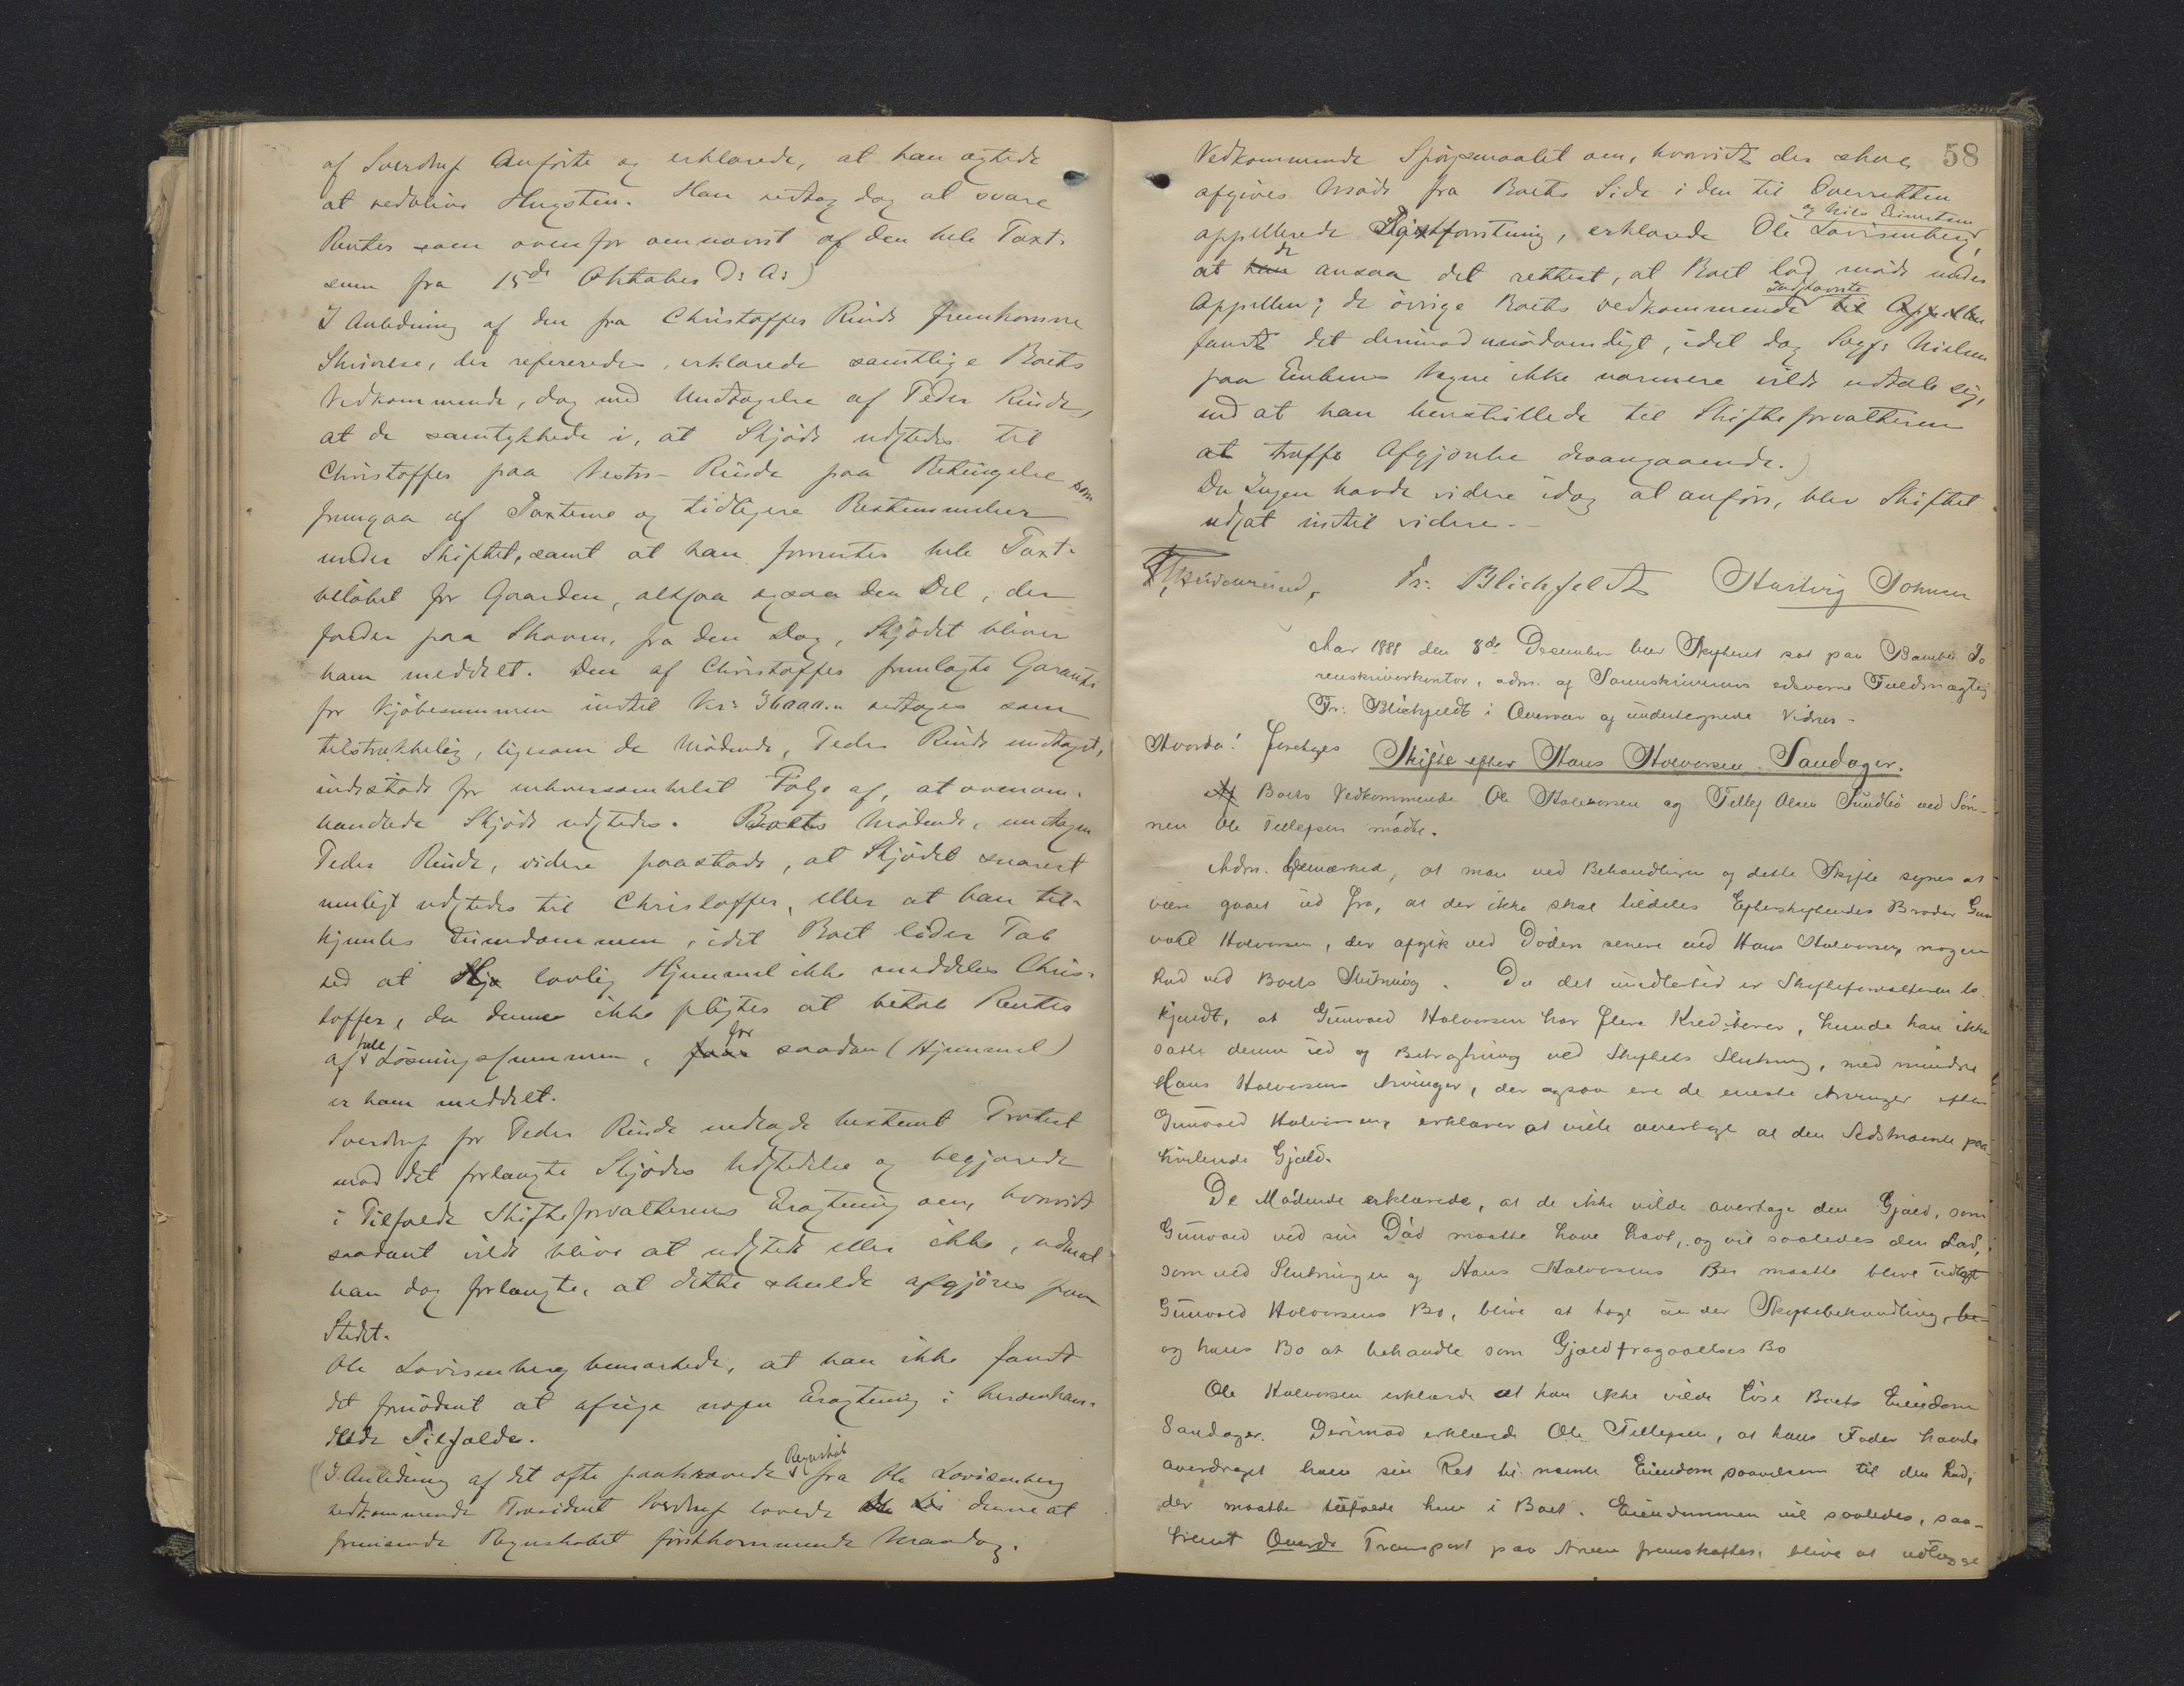 af Sverdrup Anførte og erklærede, at han agtede
at vedblive Hugsten. Han vedtog dog at svare
Renter som ovenfor omnævnt af den hele Taxt-
sum fra 15de Oktober D: A:)
I Anledning af den fra Christoffer Rinde fremkomne
Skrivelse, der refereredes, erklærede samtlige Boets
Vedkommende, dog med Undtagelse af Peder Rinde,
at de samtykkede i, at Skjøde udstedes til
Christoffer paa Vestre Rinde paa Betingelse som
fremgaa af Taxterne og tidligere Bestemmelser
under Skiftet, samt at han forrenter hele Taxt-
beløbet for Gaarden, altsaa ogsaa den Del, der
falder paa Skoven, fra den Dag, Skjødet bliver
ham meddelt. Den af Christoffer fremlagte Garanti
for Kjøbesummen indtil Kr: 36000.- vedtages som
tilstrækkelig, ligesom de Mødende, Peder Rinde undtaget,
indestode for enhversomhelst Følge af, at ovenom-
handlede Skjøde udstedes. Boets Mødende, undtagen
Peder Rinde, videre paastode, at Skjødet snarest
muligt udstedes til Christoffer, eller at han til-
kjendes Eiendommen, idet Boet lider Tab
ved at Skjø lovlig Hjemmel ikke meddeles Chris-
toffer, da denne ikke pligter at betale Renter
af hele Løsningssummen, før saadan (Hjemmel)
er ham meddelt.
Sverdrup for Peder Rinde nedlagde bestemt Protest
mod det forlangte Skjødes Udstedelse og begjærede
i Tilfælde Skifteforvalterens Eragtning om, hvorvidt
saadant vilde blive at udstede eller ikke, ved
han dog forlangte, at dette skulde afgjøres paa
Stedet.
Ole Lovisenberg bemærkede, at han ikke fandt
det fornødent at afsige nogen Eragtning i heromhan-
dlede Tilfælde.
(I Anledning af det ofte paakrævede Regnskab fra Ole Lovisenberg
vedkommende Provideut Sverdrup lovede denne at
fremsende Regnskabet førstkommende Mandag.
58
Vedkommende Spørgsmaalet om, hvorvidt der skal
afgives Møde fra Boets Side i den til Overretten
appellerede Skjøtforretning, erklærede Ole Lovisenberg, og Nils Eivindsen
at han de ansaa det rettest, at Boet lod møde under
Appellen; de øvrige Boets vedkommende Indstævnte til Appellen
fandt det derimod unødvendigt, idet dog Sagf: Nielsen
paa Enkens Vegne ikke nærmere vilde udtale sig,
end at han henstillede til Skifteforvalteren
at træffe Afgjørelse desangaaende.)
Da Ingen havde videre idag at anføre, blev Skiftet
udsat indtil videre.-
Fr: Blichfeldt Hartvig Johnsen
Aar 1888 den 8de December blev Skifteret sat paa Bamble So
renskriverkontor, adm. af Sorenskriverens edsvorne Fuldmægtig
Fr: Blichfeldt i Overvær af undertegnede Vidner.-
Hvorda! foretages Skifte efter Hans Halvorsen Sandager.
Af Boets Vedkommende Ole Halvorsen og Tellef Olsen Sundbø ved Søn-
nen Ole Tellefsen mødte.
Adm. bemærkede, at man ved Behandlingen af dette Skifte synes at
være gaaet ud fra, at der ikke skal tildeles Efterskiftendes Broder Gun
vald Halvorsen, der afgik ved Døden senere end Hans Halvorsen, nogen
Lod ved Boets Slutning. Da det imidlertid er Skifteforvalteren be
kjendt, at Gunvald Halvorsen har flere Kreditorer, kunde han ikke
sætte denne ud af Betragtning ved Skiftets Slutning, med mindre
Hans Halvorsens Arvinger, der ogsaa ere de eneste Arvinger efter
Gunvald Halvorsen, erklærer at ville overtage al den Sidstnævnte paa-
hvilende Gjæld.
De Mødende erklærede, at de ikke vilde overtage den Gjæld, som
Gunvald ved sin Død maatte have havt, og vil saaledes den Lod,
som ved Slutningen af Hans Halvorsens Bo maatte blive udlagt
Gunvald Halvorsens Bo, blive at tage under Skiftebehandling, be-
og hans Bo at behandle som Gjældfragaaelses Bo
Ole Halvorsen erklærede at han ikke vilde løse Boets Eiendom
Sandager. Derimod erklærede Ole Tellefsen, at hans Fader havde
overdraget ham sin Ret til nævnte Eiendom saavelsom til den Lod,
der maatte tilfalde ham i Boet. Eiendommen vil saaledes, saa-
fremt Transport paa Arven fremskaffes, blive at udlægge